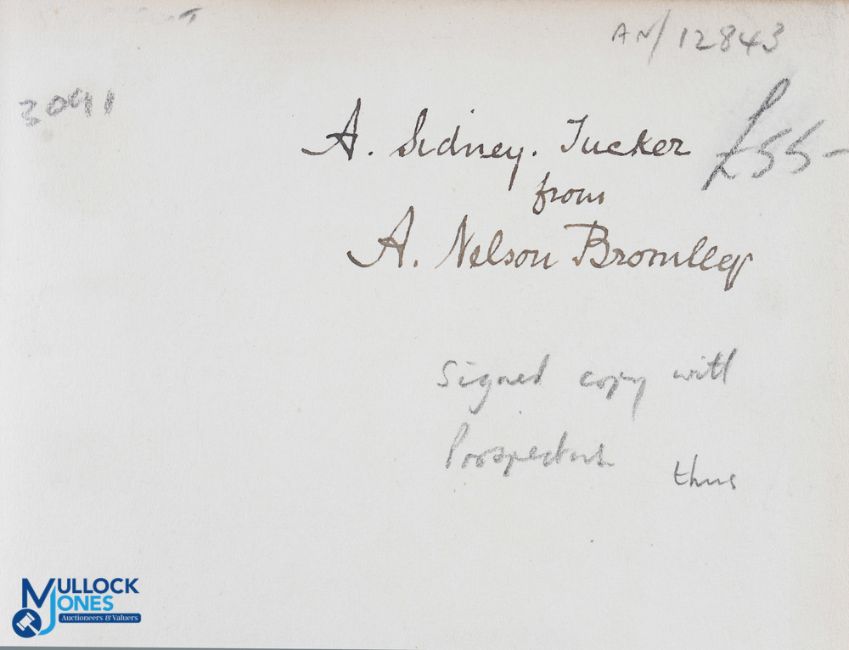 AN/12843
3091
A. Sidney. Tucker
£55-
from
A. Nelson Bromley
Signed copy with
Prospectus thus
MULLOCK
JONES
Auctioneers & Valuers